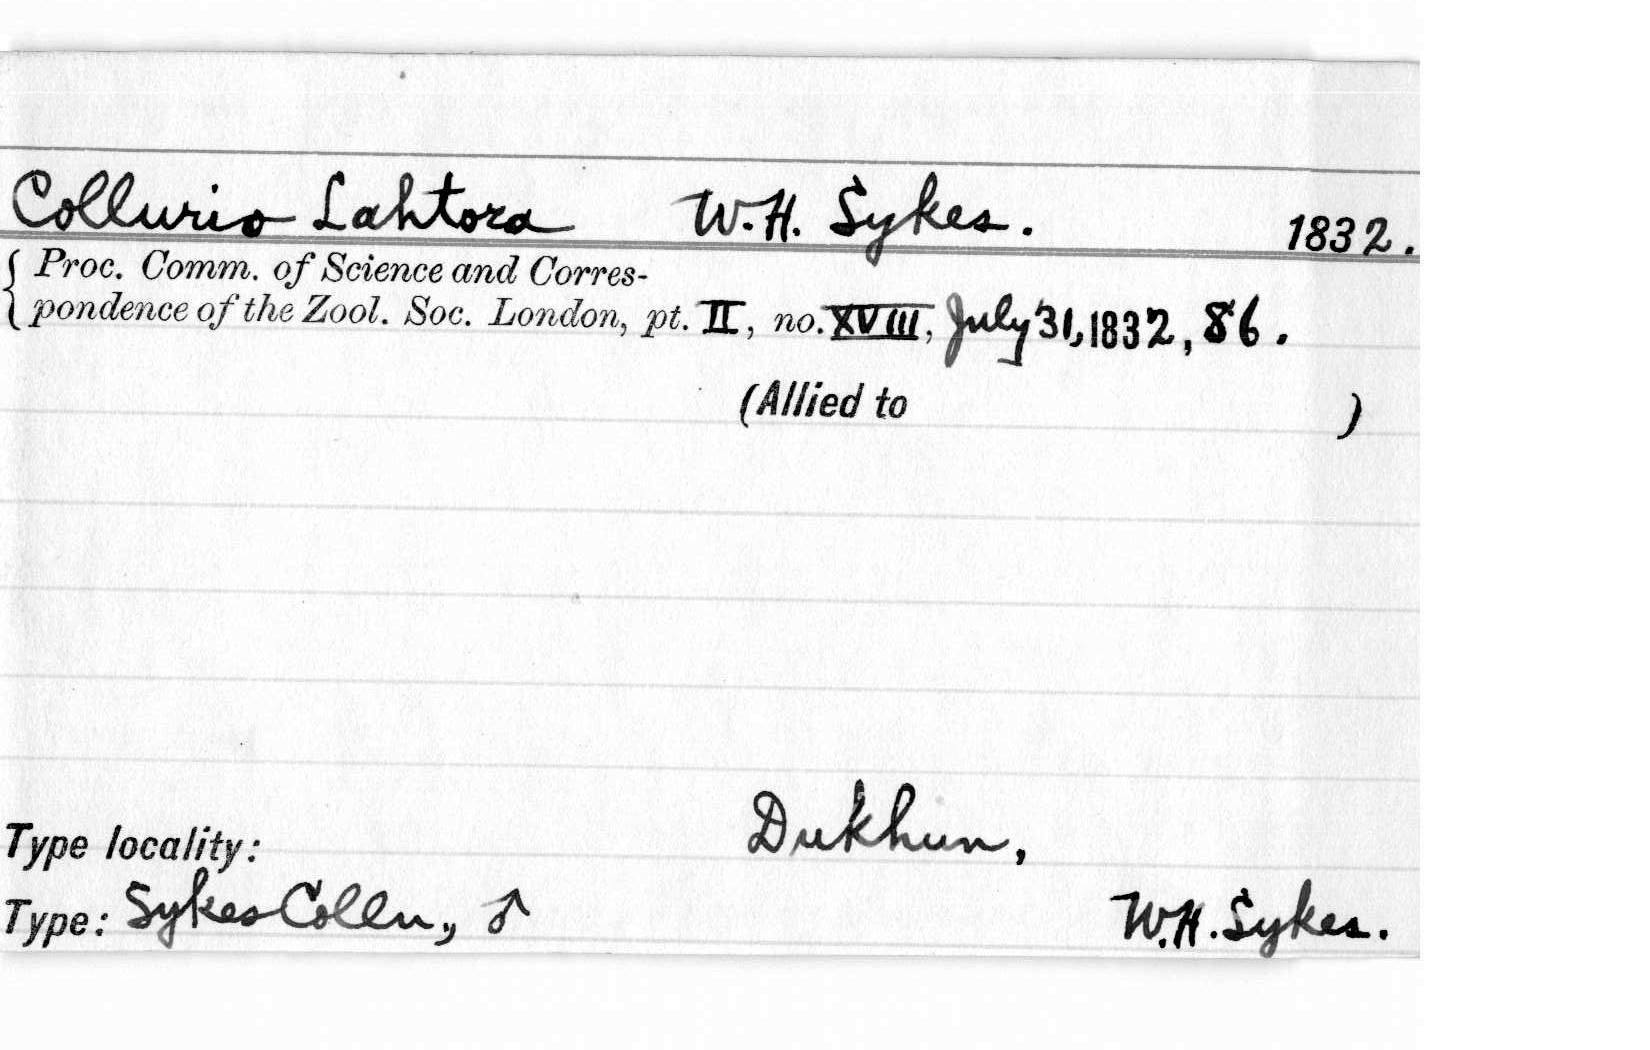 Collurio Lahtora W.H. Sykes. 1832.
Proc. Comm. of Science and Corres-
pondence of the Zool. Soc. London, pt. II, no. XVIII, July 31, 1832, 86.
(Allied to )
Type locality: Dukhun,
Type: Sykes Colln., ♂ W.H. Sykes.